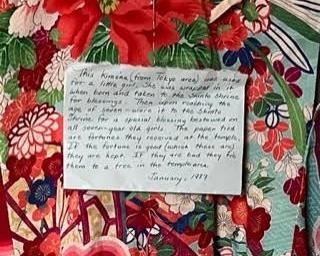 This Kimona (from Tokyo area) was used
for a little girl. She was wrapped in it
when born and taken to the Shinto Shrine
for blessings. Then upon reaching the
age of seven - wore it to the Shinto
Shrine for a special blessing bestowed on
all seven-year old girls. The paper tied
are fortunes they received at the temple.
If the fortune is good (which these are)
they are kept. If they are bad they tie
them to a tree in the temple area.
January, 1987